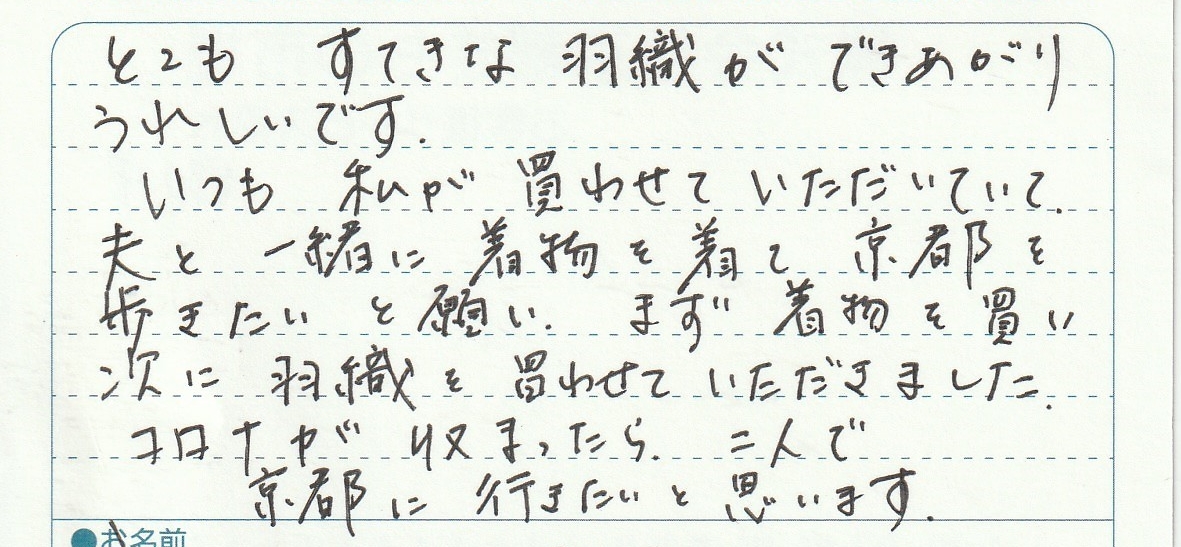 とても すてきな 羽織が できあがり
うれしいです.
いつも 私が 買わせて いただいていて.
夫と 一緒に 着物を 着て 京都を
歩きたい と願い. まず 着物を 買い
次に 羽織を 買わせて いただきました.
コロナが 収まったら. 二人で
京都に 行きたいと 思います.
●お名前